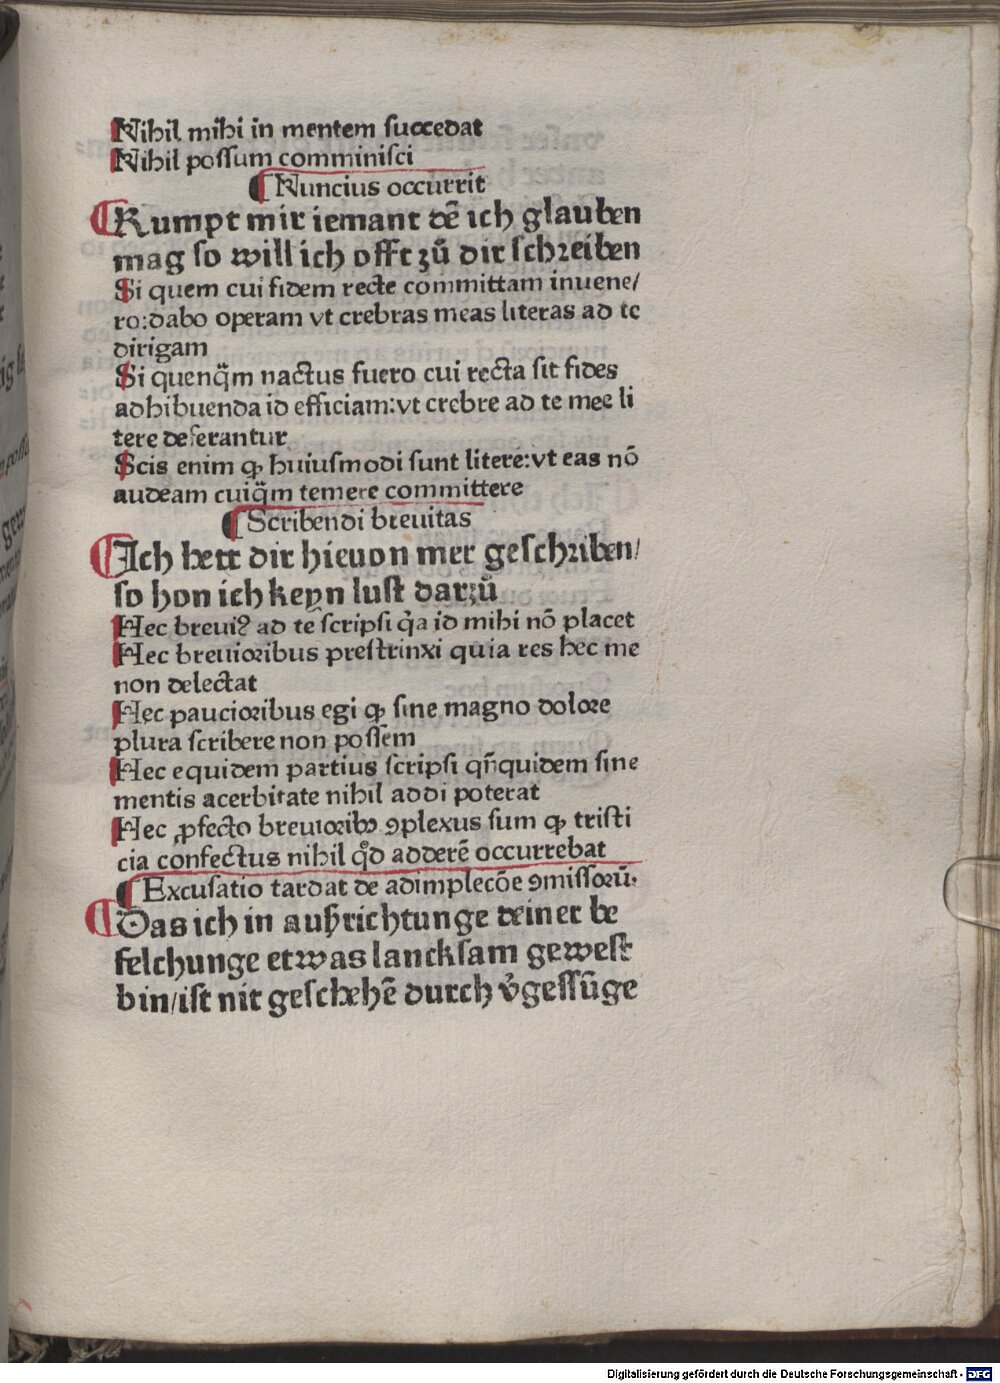 Nihil mihi in mentem succedat
Nihil possum comminisci
¶ Nuncius occurrit
¶ Kumpt mir iemant dē ich glauben
mag so will ich offt zů dir schreiben
Si quem cui fidem recte committam inuene/
ro:dabo operam vt crebras meas literas ad te
dirigam
Si quenq̃m nactus fuero cui recta sit fides
adhibuenda id efficiam:vt crebre ad te mee li
tere deferantur
Scis enim ꝙ huiusmodi sunt litere:vt eas nō
audeam cuiq̃m temere committere
¶ Scribendi breuitas
¶ Ich hett dir hieuon mer geschriben/
so hon ich keyn lust darzů
Hec breui⁹ ad te scripsi q̇a id mihi nō placet
Hec breuioribus prestrinxi quia res hec me
non delectat
Hec paucioribus egi ꝙ sine magno dolore
plura scribere non possem
Hec equidem partius scripsi qñquidem sine
mentis acerbitate nihil addi poterat
Hec ꝓfecto breuiorib⁹ ꝯplexus sum ꝙ tristi
cia confectus nihil qd̊ adderē occurrebat
¶ Excusatio tardat de adimplecōe ꝯmissorū.
¶ Das ich in außrichtunge deiner be
felchunge etwas lancksam gewest
bin/ist nit geschehē durch v̓gessūge
Digitalisierung gefördert durch die Deutsche Forschungsgemeinschaft - DFG